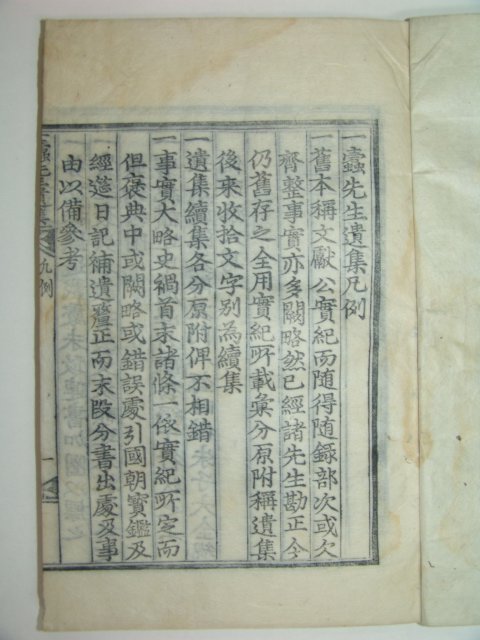 一蠹先生遺集凡例
一舊本稱文獻公實紀而隨得隨錄部次或欠
齊整事實亦多闕略然已經諸先生勘正今
仍舊存之全用實紀所載彙分原附稱遺集
後來收拾文字別爲續集
一遺集續集各分原附俾不相錯
一事實大略史禍首末諸條一依實紀所定而
但褒典中或闕略或錯誤處引國朝寶鑑及
經筵日記補遺釐正而末段分書出處及事
由以備參考
凡例
一